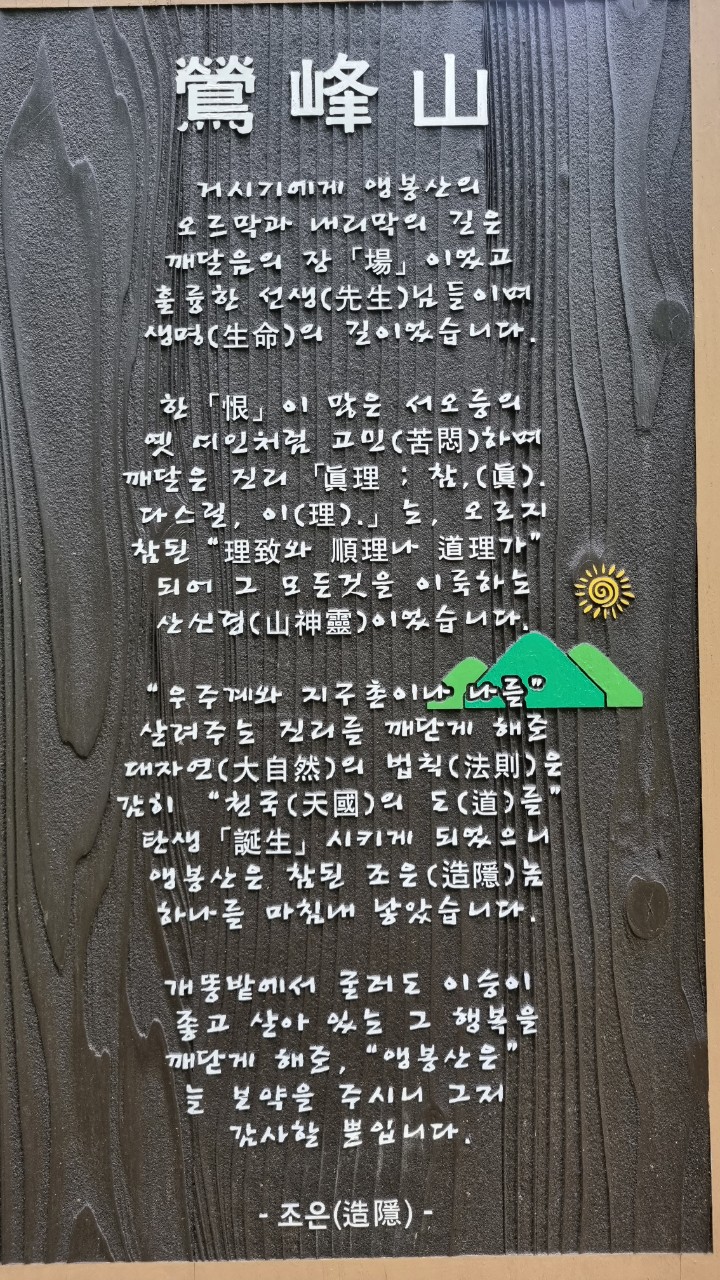 鶯峰山
거시기에게 앵봉산의
오르막과 내리막의 길은
깨달음의 장「場」이었고
훌륭한 선생(先生)님들이며
생명(生命)의 길이었습니다.
한「恨」이 많은 서오릉의
옛 여인처럼 고민(苦悶)하며
깨달은 진리「眞理 ; 참,(眞).
다스릴, 이(理).」는, 오로지
참된 “理致와 順理나 道理가”
되어 그 모든것을 이룩하는
산신령(山神靈)이었습니다.
“우주계와 지구촌이나 나를”
살려주는 진리를 깨닫게 해준
대자연(大自然)의 법칙(法則)은
감히 “천국(天國)의 도(道)를”
탄생「誕生」시키게 되었으니
앵봉산은 참된 조은(造隱)놈
하나를 마침내 낳았습니다.
개똥밭에서 굴러도 이승이
좋고 살아 있는 그 행복을
깨닫게 해준, “앵봉산은”
늘 보약을 주시니 그저
감사할 뿐입니다.
- 조은(造隱) -